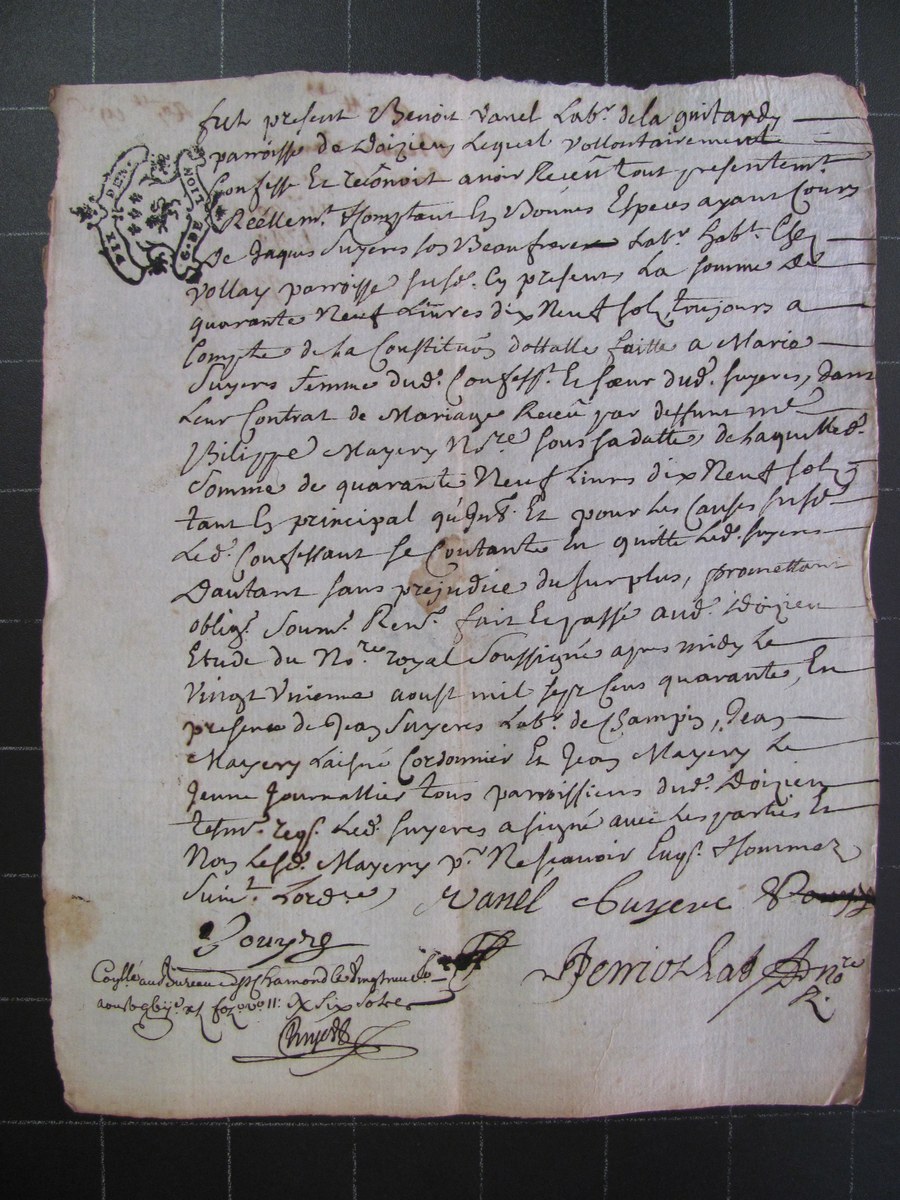 DIX DEN.
GNE. LION
fut present Benoit Vanel Labr. de la guitardy
parroisse de Doizieu Lequel vollontairement
Confesse Et reconnoit avoir Receu tout presentemt.
Réellemt. Comptant En Bonnes Especes ayant Cours
De Jaques Suyeres son Beaufrere Labr. habt. Chez
Vollay parroisse susd. Cy present, La somme De
quarante Neuf Livres dix Neuf sols, toujours a
Compte de la Constituõn dottalle faitte a Marie
Suyers femme dud. Confesst. Et sœur dud. suyeres, dans
Leur Contrat de Mariage Receu par deffunt me
Philippe Mayery Nore sous sa datte, de laquelle
Somme de quarante Neuf Livres dix Neuf sols
tant En principal qu'Int. Et pour les Causes susd.
Led. Confessant se Contante En quitte Led. suyers
Dautant sans prejudice du surplus, promettant
oblig. Soumt. Rent. fait Et passé aud. Doizieu
Etude du Nore royal Soussigné apres midy Le
Vingt Unieme aoust mil sept Cens quarante, En
presence de Jean Suyeres Labr. de Champin, Jean
Mayery Laisné Cordonnier Et Jean Mayery Le
Jeune Journallier tous parroissiens dud. Doizieu
tesm. reqs. Led. suyeres a signé avec Les parties Et
Non Lesd. Mayery pr. Ne sçavoir Enqs. Et sommez
Suivt. Lord.ce
Vanel Suyere
Jerriot
nore
R.
Conllé au Bureau de St Chamond le
aoust six sols